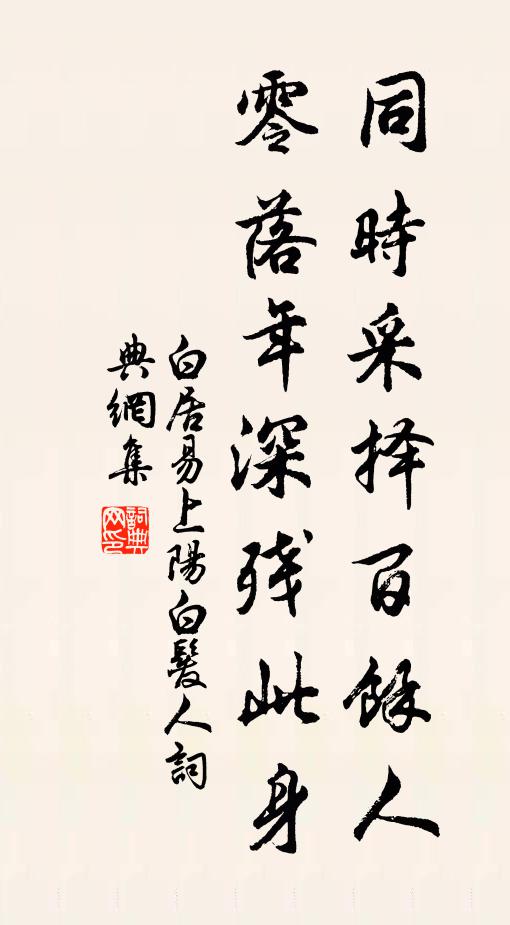 同時采择百餘人
零落年深残此身
白居易上陽白髮人詞
典網集
詞典网印